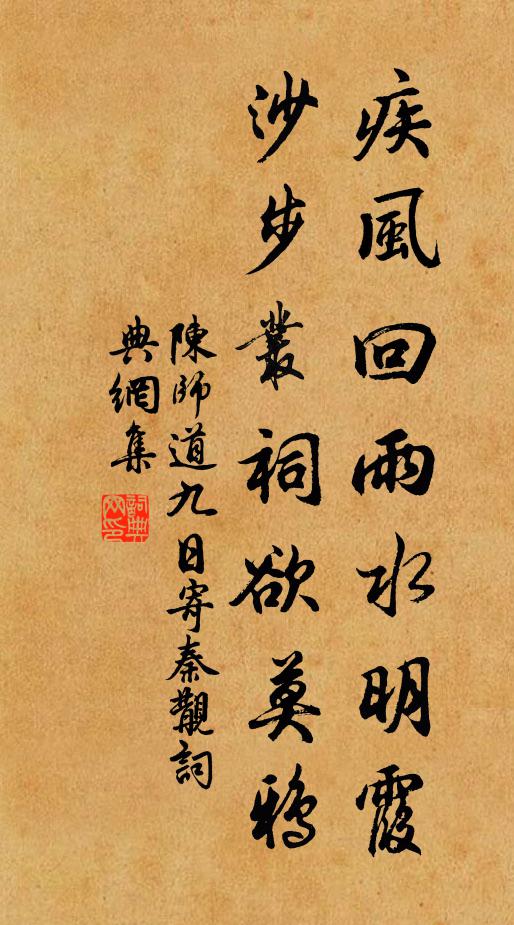 疾風回雨水明霞
沙步叢祠欲莫鴉
陳師道九日寄秦觀詞
典網集
詞典網印